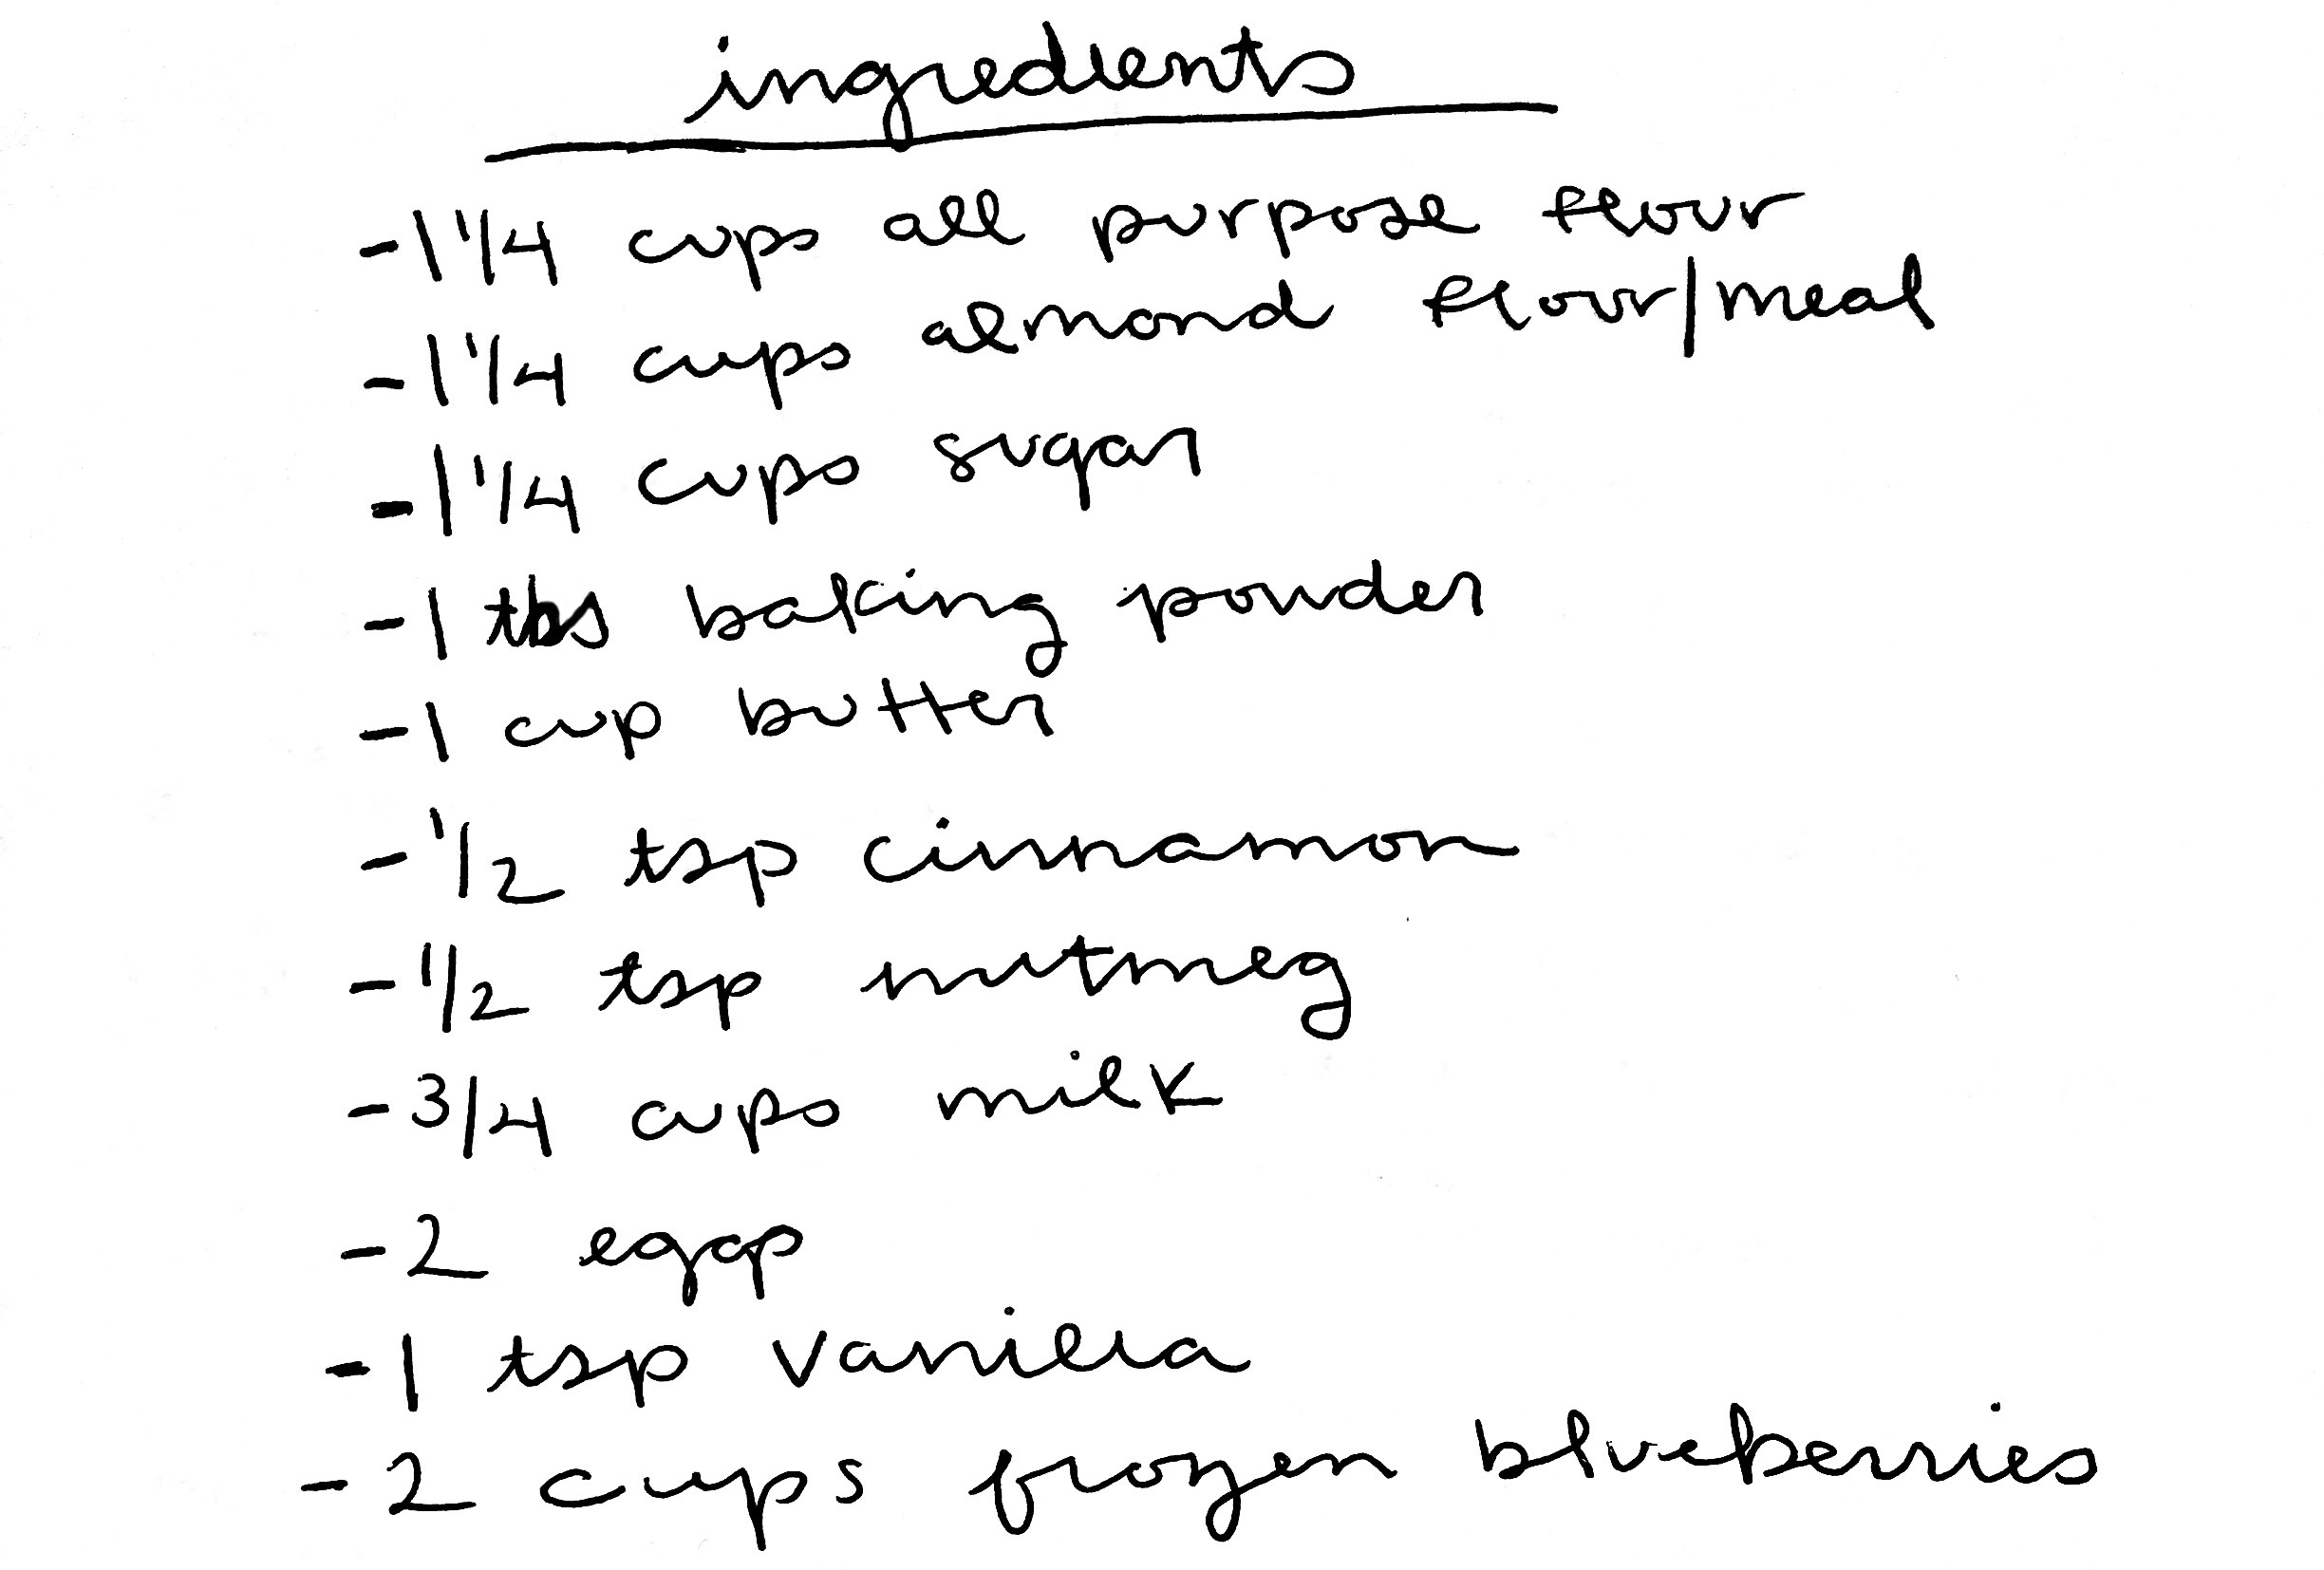 ingredients
-1 1/4 cups all purpose flour
-1 1/4 cups almond flour/meal
-1 1/4 cups sugar
-1 tbs baking powder
-1 cup butter
-1/2 tsp cinnamon
-1/2 tsp nutmeg
-3/4 cups milk
-2 eggs
-1 tsp vanilla
-2 cups frozen blueberries